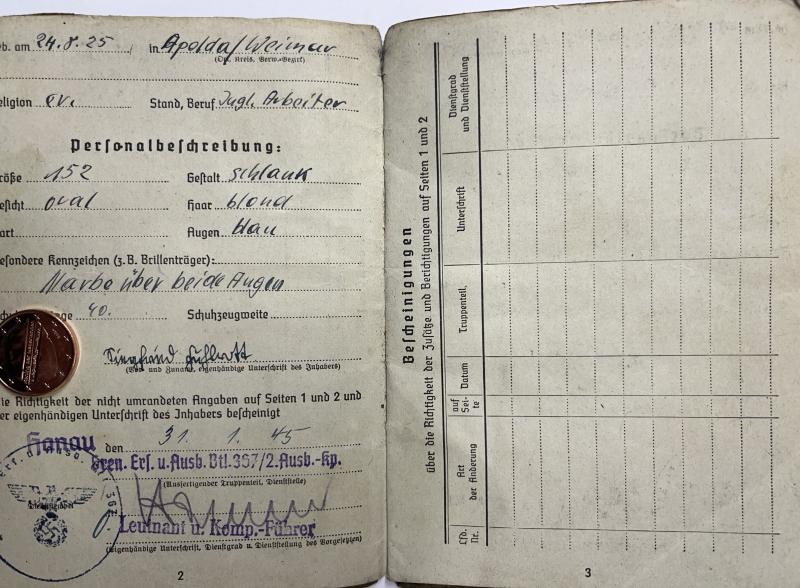 eb. am 24.8.25 in Apolda/Weimar
(Ort, Kreis, Verw.-Bezirk)
eligion ev. Stand, Beruf Jugl. Arbeiter
Perſonalbeſchreibung:
röße 152 Geſtalt ſchlank
eſicht oval Haar blond
art Augen blau
eſondere Kennzeichen (z. B. Brillenträger):
Narbe über beide Augen
40. Schuhzeugweite
(Vor- und Zuname, eigenhändige Unterſchrift des Inhabers)
ie Richtigkeit der nicht umrandeten Angaben auf Seiten 1 und 2 und
er eigenhändigen Unterſchrift des Inhabers beſcheinigt
Hanau den 31. 1. 45
Gren. Erſ. u. Ausb. Btl. 367/2. Ausb.-Kp.
(Ausfertigender Truppenteil, Dienſtſtelle)
Leutnant u. Komp.-Führer
(Eigenhändige Unterſchrift, Dienſtgrad u. Dienſtſtellung des Vorgeſetzten)
2
Beſcheinigungen
über die Richtigkeit der Zuſätze und Berichtigungen auf Seiten 1 und 2
Lfd. Nr.
Art der Änderung
auf Sei-te
Datum
Truppenteil,
Unterſchrift
Dienſtgrad und Dienſtſtellung
3